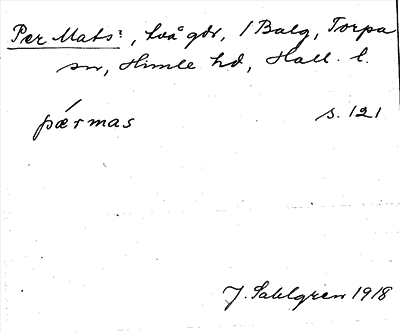 Per Mats:, två gdr, 1 Balg, Torpa
sn, Himle hd, Hall. l.
pǽrmas s. 121
J. Sahlgren 1918